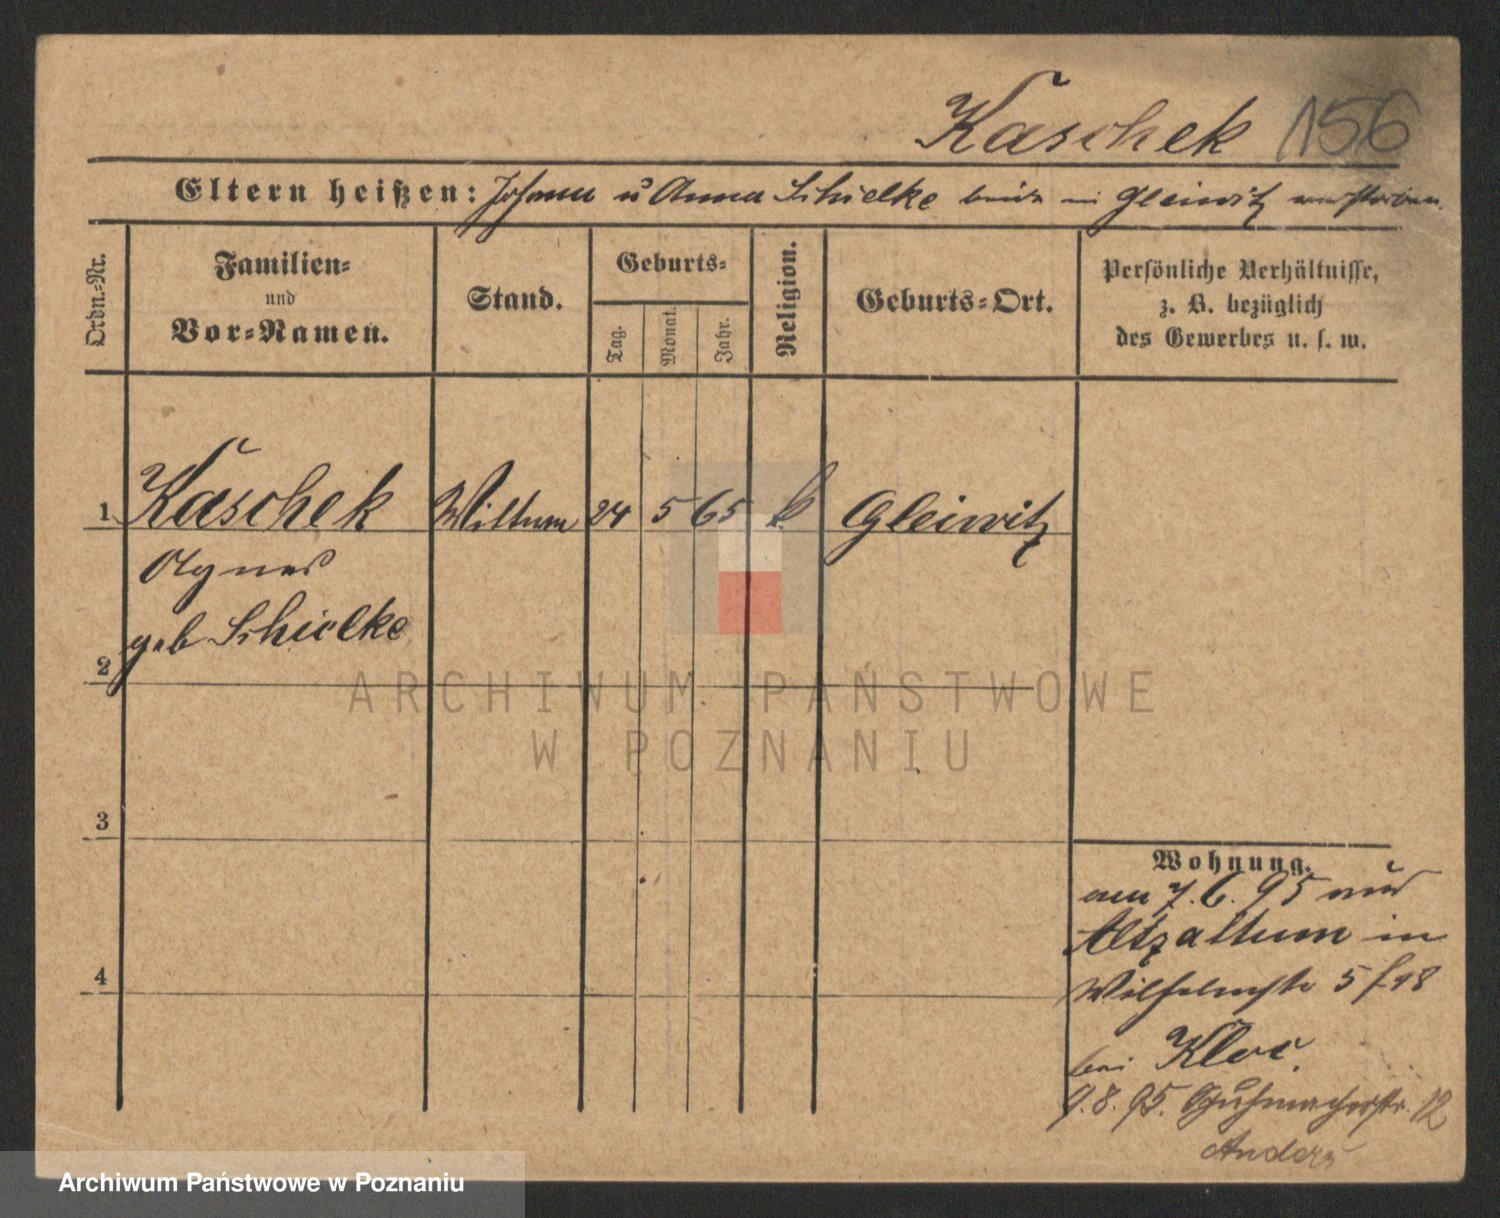 Kaschek 156
Eltern heißen: Johann u Anna Schielke beide in Gleiwitz verstorben.
Ordn.-Nr.
Familien-
und
Vor-Namen.
Stand.
Geburts-
Tag.
Monat.
Jahr.
Religion.
Geburts-Ort.
Persönliche Verhältnisse,
z. B. bezüglich
des Gewerbes u. s. w.
1 Kaschek 24 5 65 k Gleiwitz
Agnes
geb Schielke
2
3
4
Wohnung.
am 7. 6. 95 aus
in
Wilhelmstr 5 / 18
bei Kloc.
9. 8. 95. 12
ARCHIWUM PAŃSTWOWE
W POZNANIU
Archiwum Państwowe w Poznaniu